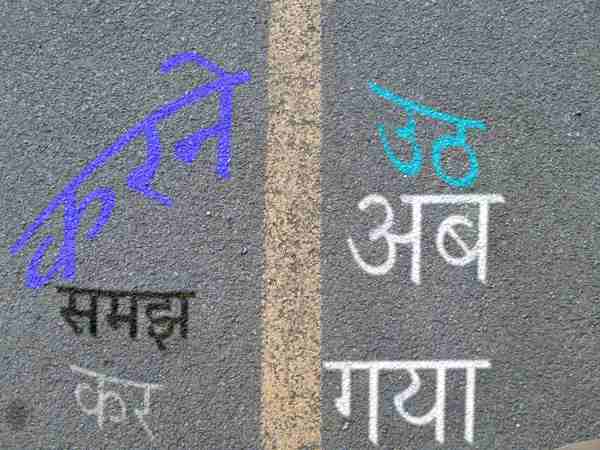 करने
समझ
कर
उठ
अब
गया